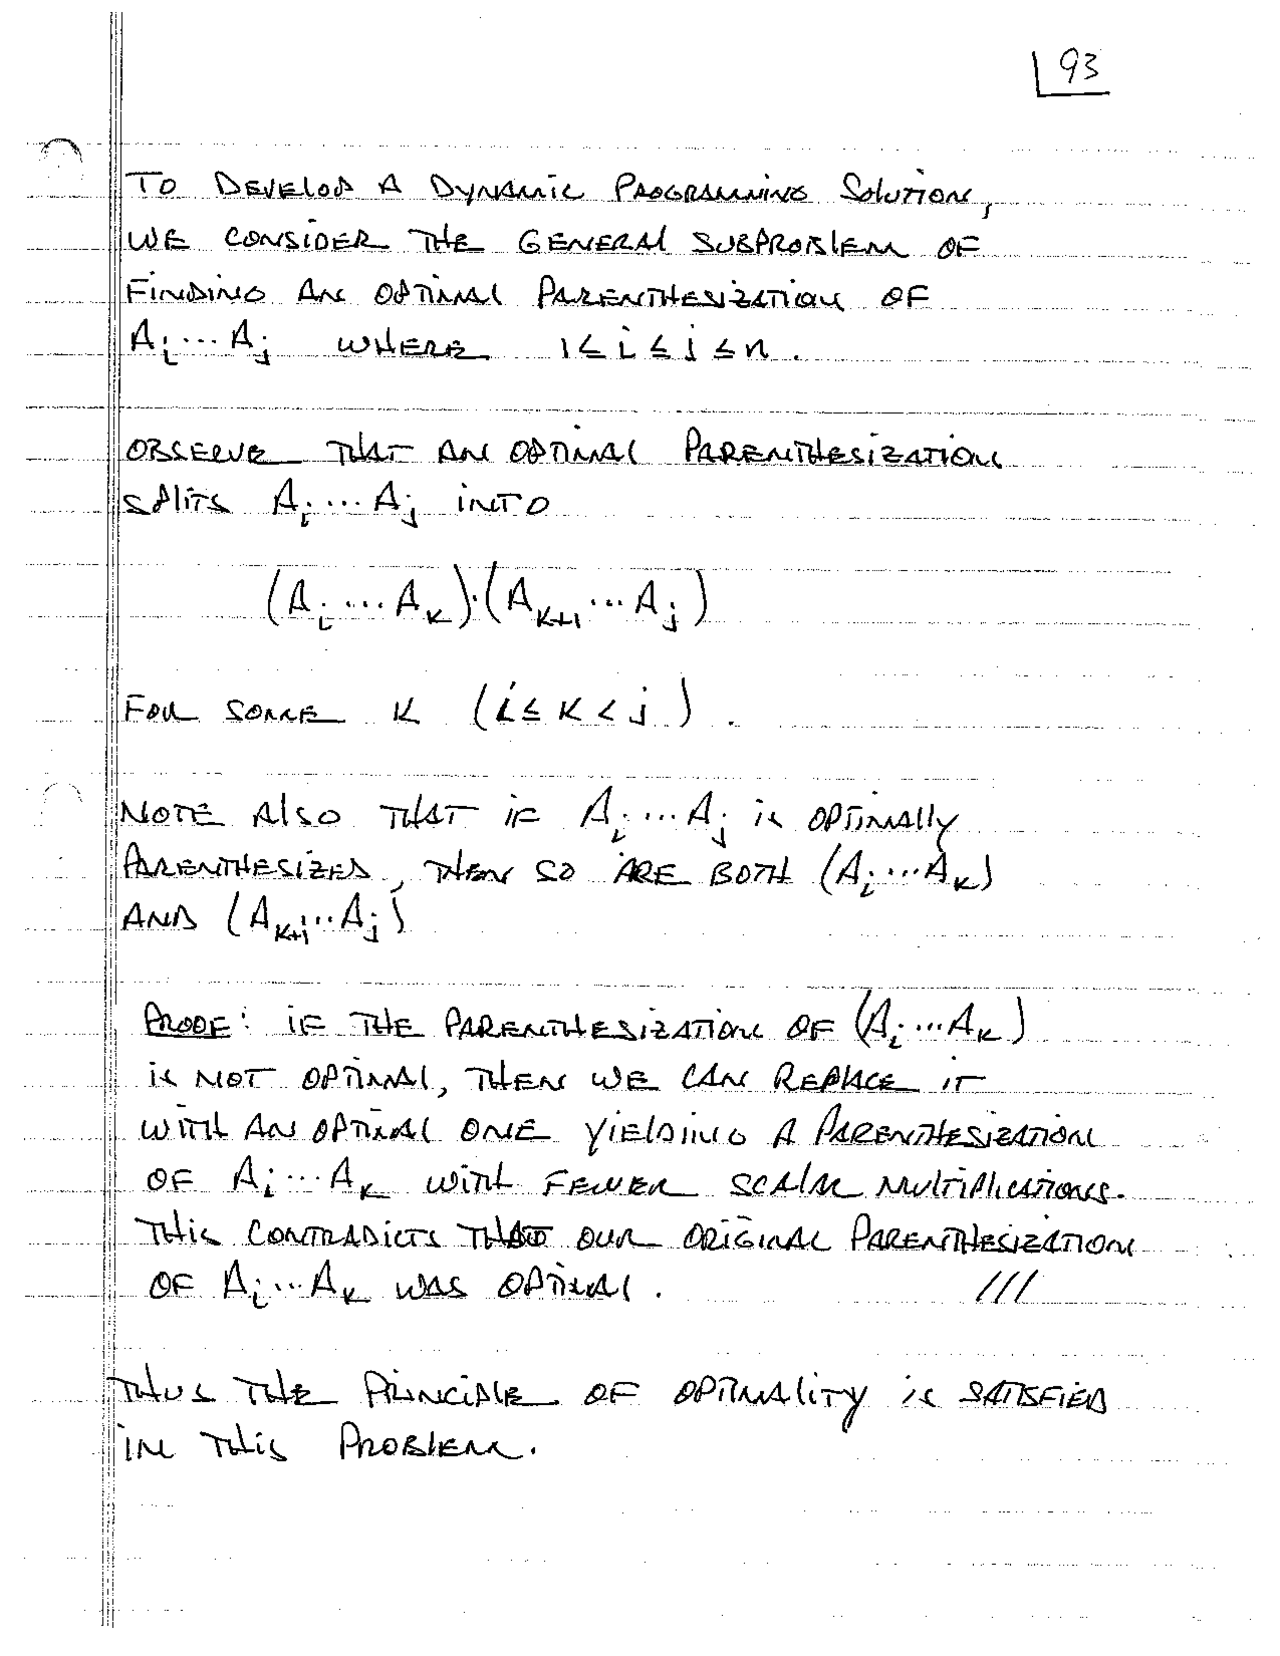 93
TO DEVELOP A DYNAMIC PROGRAMMING SOLUTION,
WE CONSIDER THE GENERAL SUBPROBLEM OF
FINDING AN OPTIMAL PARENTHESIZATION OF
A_i ... A_j WHERE 1 ≤ i ≤ j ≤ n.
OBSERVE THAT AN OPTIMAL PARENTHESIZATION
SPLITS A_i ... A_j INTO
(A_i ... A_k)·(A_{k+1} ... A_j)
FOR SOME K (i ≤ K < j).
NOTE ALSO THAT IF A_i ... A_j IS OPTIMALLY
PARENTHESIZED, THEN SO ARE BOTH (A_i ... A_k)
AND (A_{k+1} ... A_j)
PROOF: IF THE PARENTHESIZATION OF (A_i ... A_k)
IS NOT OPTIMAL, THEN WE CAN REPLACE IT
WITH AN OPTIMAL ONE YIELDING A PARENTHESIZATION
OF A_i ... A_k WITH FEWER SCALAR MULTIPLICATIONS.
THIS CONTRADICTS THAT OUR ORIGINAL PARENTHESIZATION
OF A_i ... A_k WAS OPTIMAL. ///
THUS THE PRINCIPLE OF OPTIMALITY IS SATISFIED
IN THIS PROBLEM.